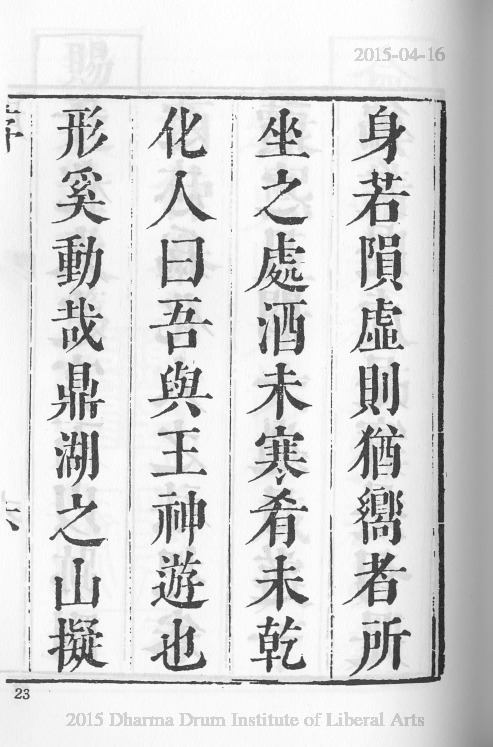 2015-04-16
身若隕虛則猶嚮者所
坐之處酒未寒肴未乾
化人曰吾與王神遊也
形奚動哉鼎湖之山擬
六
23
2015 Dharma Drum Institute of Liberal Arts